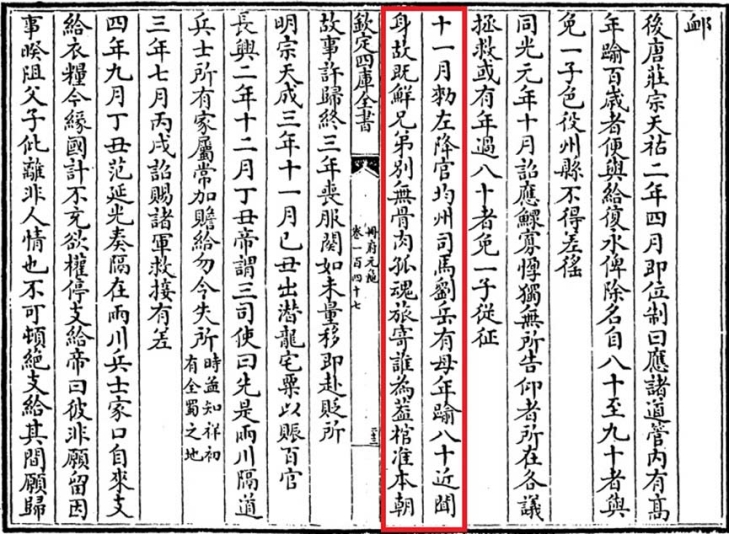 卹
後唐莊宗天祐二年四月即位制曰應諸道管内有髙
年踰百歳者便與給復永俾除名自八十至九十者與
免一子色役州縣不得差徭
同光元年十月詔應鰥寡惸獨無所告仰者所在各議
拯救或有年過八十者免一子從征
十一月勅左降官均州司馬劉岳有母年踰八十近聞
身故既鮮兄弟別無骨肉孤魂旅寄誰為葢棺准本朝
欽定四庫全書
冊府元龜
卷一百四十七
故事許歸終三年喪服闋如未量移即赴貶所
明宗天成三年十一月已丑出潜龍宅粟以賑百官
長興二年十二月丁丑帝謂三司使曰先是兩川隔道
兵士所有家屬常加贍給勿令失所時孟知祥初有全蜀之地
三年七月丙戌詔賜諸軍救接有差
四年九月丁丑范延光奏隔在兩川兵士家口自來支
給衣糧今縁國計不充欲權停支給帝曰彼非願留因
事暌阻父子仳離非人情也不可頓絶支給其間願歸